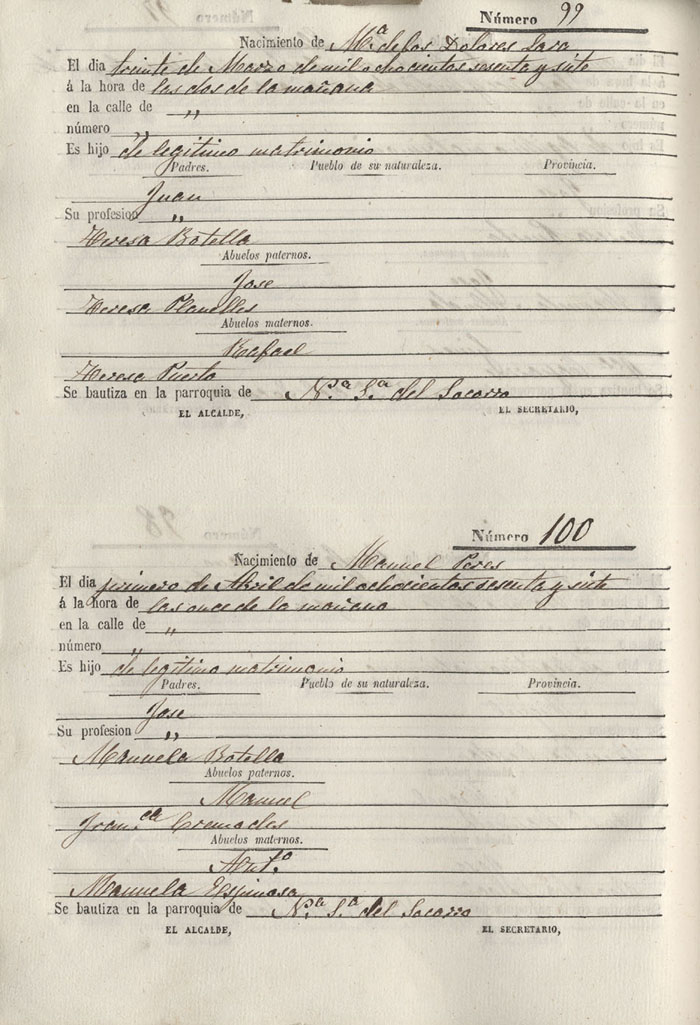 Número 99
Nacimiento de Mª de los Dolores Lara
El dia treinte de Marzo de mil ochocientos sesenta y siete
á la hora de las dos de la mañana
en la calle de "
número "
Es hijo de legitimo matrimonio
Padres. Pueblo de su naturaleza. Provincia.
Juan
Su profesion "
Teresa Botella
Abuelos paternos.
Jose
Teresa Planelles
Abuelos maternos.
Rafael
Teresa Puerto
Se bautiza en la parroquia de N.ª S.ª del Socorro
EL ALCALDE, EL SECRETARIO,
Número 100
Nacimiento de Manuel Peres
El dia primero de Abril de mil ochocientos sesenta y siete
á la hora de las once de la mañana
en la calle de "
número "
Es hijo de legitimo matrimonio
Padres. Pueblo de su naturaleza. Provincia.
Jose
Su profesion "
Manuela Botella
Abuelos paternos.
Manuel
Fran.ca Cremades
Abuelos maternos.
Ant.º
Manuela Espinosa
Se bautiza en la parroquia de N.ª S.ª del Socorro
EL ALCALDE, EL SECRETARIO,